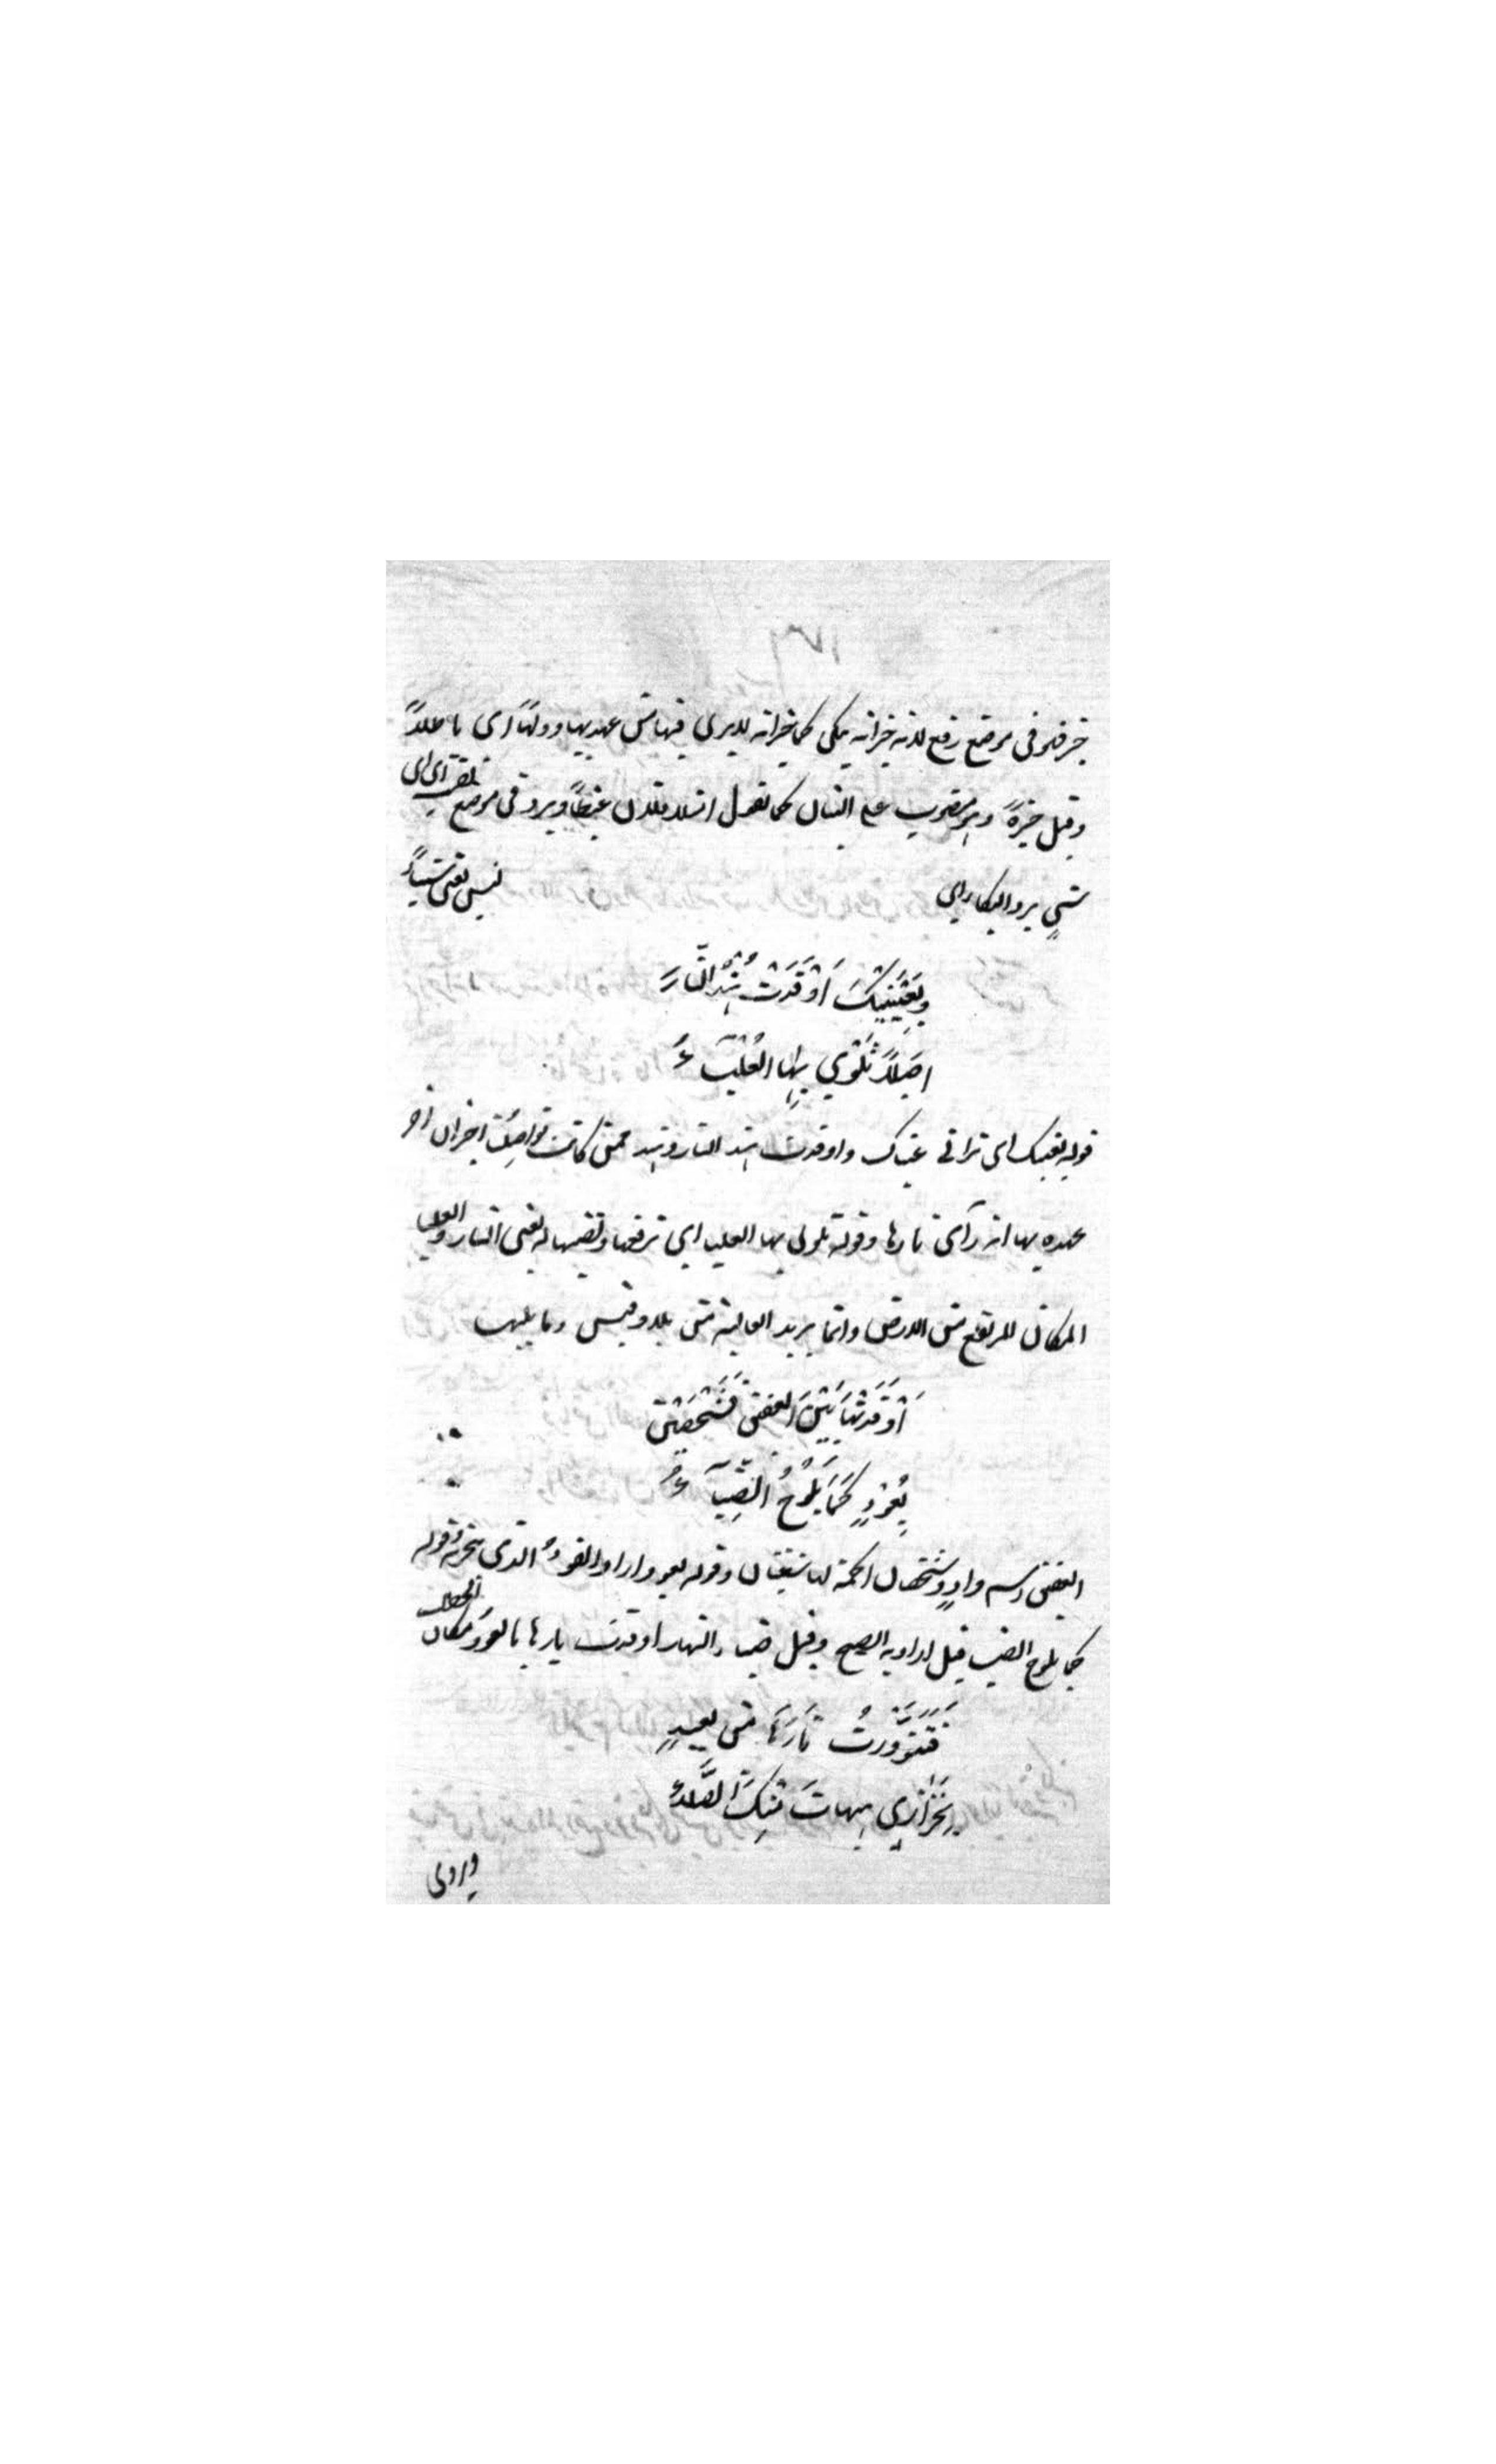 خبر فهو في موضع رفع لانه خبر انه يبكي كما خبر انه لا يرى فيها من عهد بها ودلهًا اى باطلاً
وقيل خيرة وهو منصوب على البيان كما تقول امتلا فلان غيظًا ويرد في موضع نصب اى اى
شيٍ يرد البكا اي ليس يغني شيئاً
وَبِعَيْنَيْكَ اَوْقَدَتْ هِنْدُ النَّارَ
اَصِيلاً تُلْوِي بِهَا الْعَلْيَاءُ
قوله بعينيك اى تراى عينك واوقدت هند النار وهند ممن كانت تواصل اخزان اخر
عهده بها انه رآى نارها وقوله تلوى بها العليا اي ترفعها وتضيها له يعنى النار والعليا
المكان المرتفع من الارض وانما يريد العالية من بلاد قيس وما يليها
اَوْقَدَتْهَا بَيْنَ العَقِيْقِ فَشَخْصَيْنِ
بِعُوْدٍ كَمَا يَلُوحُ الضِّيَآءُ
العقيق اسم وادٍ وشخصان اكمة لها شعبتان وقوله بعود اراد العودُ الذى يتبخر به وقوله
كما يلوح الضيا قيل اراد به الصبح وقيل ضياء النهار اوقدت نارها بالعود مكان الحطب
فَتَنَوَّرْتُ نَارَهَا من بعيدٍ
بِخَزَازي هيهاتَ مِنْكَ الصَّلاَءُ
ويروى